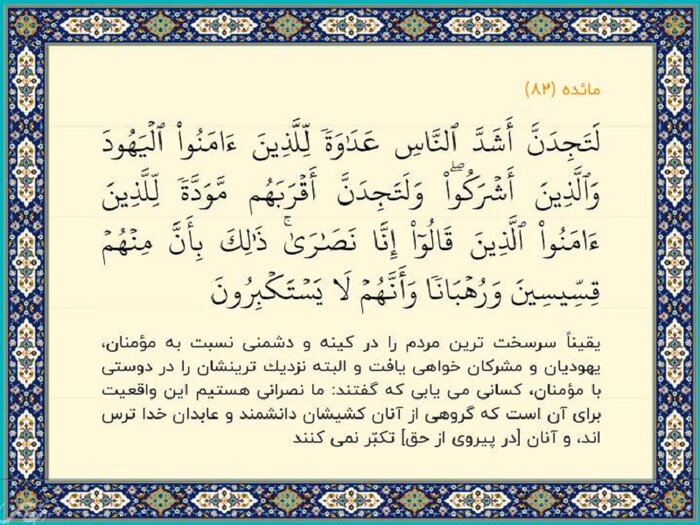 مائده (۸۲)
لَتَجِدَنَّ أَشَدَّ ٱلنَّاسِ عَدَٰوَةٗ لِّلَّذِينَ ءَامَنُواْ ٱلۡيَهُودَ
وَٱلَّذِينَ أَشۡرَكُواْۖ وَلَتَجِدَنَّ أَقۡرَبَهُم مَّوَدَّةٗ لِّلَّذِينَ
ءَامَنُواْ ٱلَّذِينَ قَالُوٓاْ إِنَّا نَصَٰرَىٰۚ ذَٰلِكَ بِأَنَّ مِنۡهُمۡ
قِسِّيسِينَ وَرُهۡبَانٗا وَأَنَّهُمۡ لَا يَسۡتَكۡبِرُونَ
یقیناً سرسخت ترین مردم را در کینه و دشمنی نسبت به مؤمنان،
یهودیان و مشرکان خواهی یافت و البته نزدیك ترینشان را در دوستی
با مؤمنان، کسانی می یابی که گفتند: ما نصرانی هستیم این واقعیت
برای آن است که گروهی از آنان کشیشان دانشمند و عابدان خدا ترس
اند، و آنان [در پیروی از حق] تکبّر نمی کنند